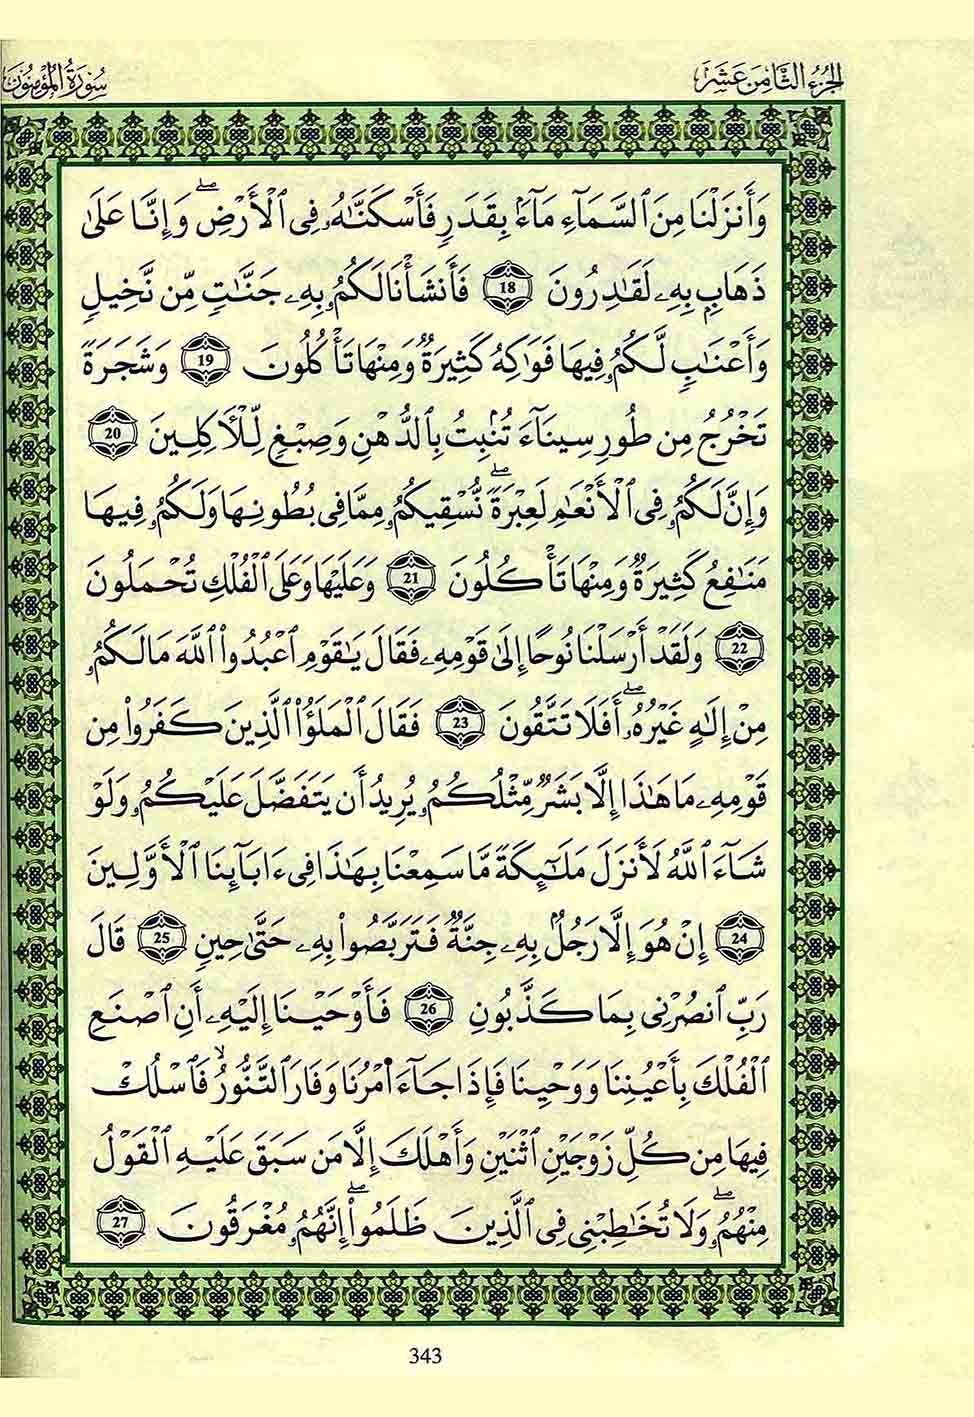 الجزء الثامن عشر
سورة المؤمنون
وَأَنزَلْنَا مِنَ ٱلسَّمَآءِ مَآءَۢ بِقَدَرٍ فَأَسْكَنَّٰهُۥ فِى ٱلْأَرْضِۖ وَإِنَّا عَلَىٰ
ذَهَابِۭ بِهِۦ لَقَٰدِرُونَ 18 فَأَنشَأْنَا لَكُمُۥ بِهِۦ جَنَّٰتٍ مِّن نَّخِيلٍ
وَأَعْنَٰبٍ لَّكُمُۥ فِيهَا فَوَٰكِهُ كَثِيرَةٌ وَمِنْهَا تَأْكُلُونَ 19 وَشَجَرَةً
تَخْرُجُ مِن طُورِ سِينَآءَ تُنۢبِتُ بِٱلدُّهْنِ وَصِبْغٍ لِّلْأَكِلِينَ 20
وَإِنَّ لَكُمُۥ فِى ٱلْأَنْعَٰمِ لَعِبْرَةًۖ نُّسْقِيكُمُۥ مِمَّا فِى بُطُونِهَا وَلَكُمُۥ فِيهَا
مَنَٰفِعُ كَثِيرَةٌ وَمِنْهَا تَأْكُلُونَ 21 وَعَلَيْهَا وَعَلَى ٱلْفُلْكِ تُحْمَلُونَ
22 وَلَقَدْ أَرْسَلْنَا نُوحًا إِلَىٰ قَوْمِهِۦ فَقَالَ يَٰقَوْمِ ٱعْبُدُوا۟ ٱللَّهَ مَا لَكُمُۥ
مِنْ إِلَٰهٍ غَيْرُهُۥٓۖ أَفَلَا تَتَّقُونَ 23 فَقَالَ ٱلْمَلَؤُا۟ ٱلَّذِينَ كَفَرُوا۟ مِن
قَوْمِهِۦ مَا هَٰذَا إِلَّا بَشَرٌ مِّثْلُكُمُۥ يُرِيدُ أَن يَتَفَضَّلَ عَلَيْكُمُۥ وَلَوْ
شَآءَ ٱللَّهُ لَأَنزَلَ مَلَٰٓئِكَةً مَّا سَمِعْنَا بِهَٰذَا فِى ءَابَآئِنَا ٱلْأَوَّلِينَ
24 إِنْ هُوَ إِلَّا رَجُلٌۢ بِهِۦ جِنَّةٌ فَتَرَبَّصُوا۟ بِهِۦ حَتَّىٰ حِينٍ 25 قَالَ
رَبِّ ٱنصُرْنِى بِمَا كَذَّبُونِ 26 فَأَوْحَيْنَا إِلَيْهِۦ أَنِ ٱصْنَعِ
ٱلْفُلْكَ بِأَعْيُنِنَا وَوَحْيِنَا فَإِذَا جَآءَ اَمْرُنَا وَفَارَ ٱلتَّنُّورُۙ فَٱسْلُكْ
فِيهَا مِن كُلِّ زَوْجَيْنِ ٱثْنَيْنِ وَأَهْلَكَ إِلَّا مَن سَبَقَ عَلَيْهِ ٱلْقَوْلُ
مِنْهُمُۥۖ وَلَا تُخَٰطِبْنِى فِى ٱلَّذِينَ ظَلَمُوا۟ۖ إِنَّهُمُۥ مُغْرَقُونَ 27
343